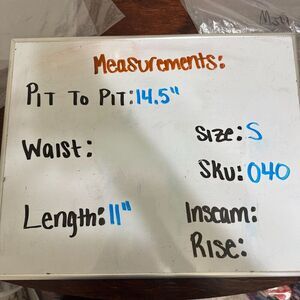 Measurements:
PIT TO PIT: 14.5"
Waist:
Size: S
Sku: 040
Length: 11"
Inseam:
Rise: